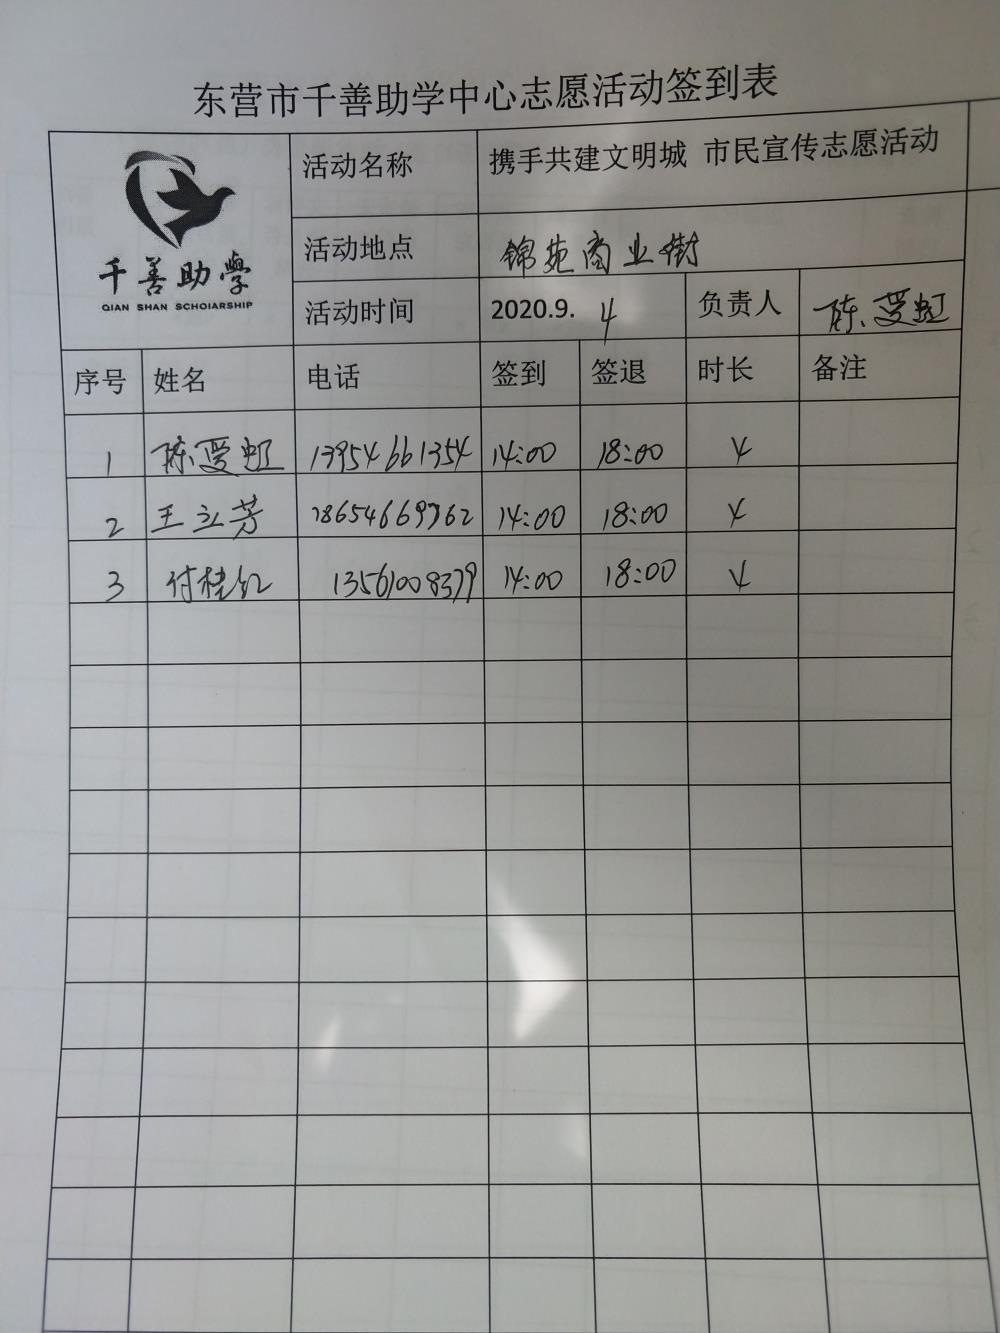 东营市千善助学中心志愿活动签到表
千善助学
QIAN SHAN SCHOIARSHIP
活动名称 携手共建文明城 市民宣传志愿活动
活动地点 锦苑商业街
活动时间 2020.9.4 负责人 陈爱虹
序号 姓名 电话 签到 签退 时长 备注
1 陈爱虹 13954661354 14:00 18:00 4
2 王立芳 18654669762 14:00 18:00 4
3 付桂红 13561008379 14:00 18:00 4